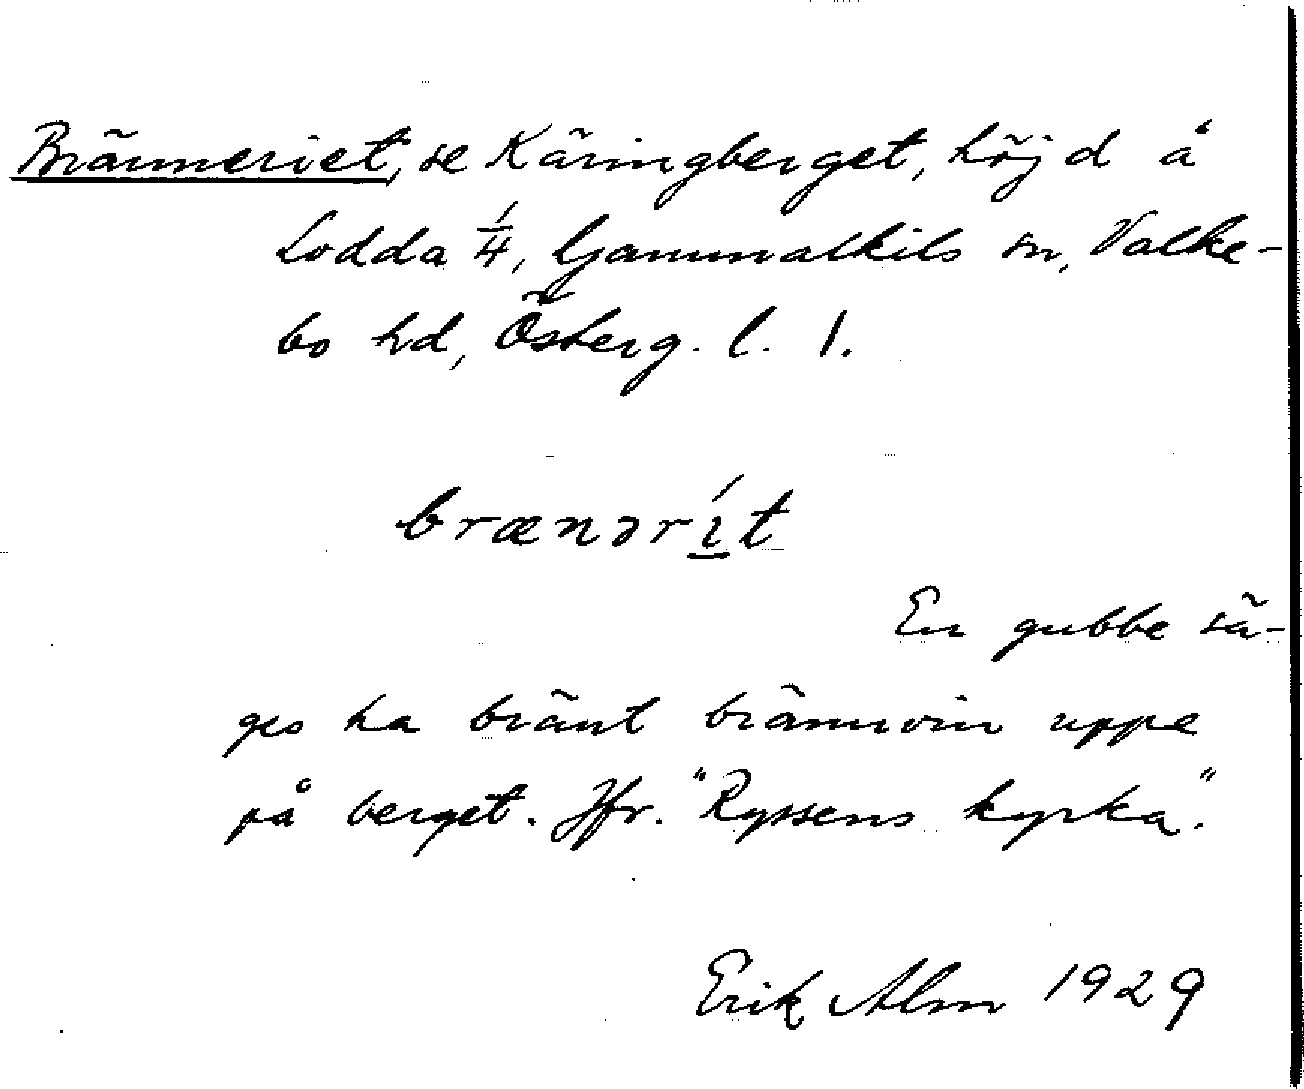 Bränneriet, se Käringberget, höjd å
Lodda 1/4, Gammalkils sn, Valke-
bo hd, Österg. l. 1.
brænərít
En gubbe sä-
ges ha bränt brännvin uppe
på berget. Jfr. "Ryssens kyrka".
Erik Alm 1929